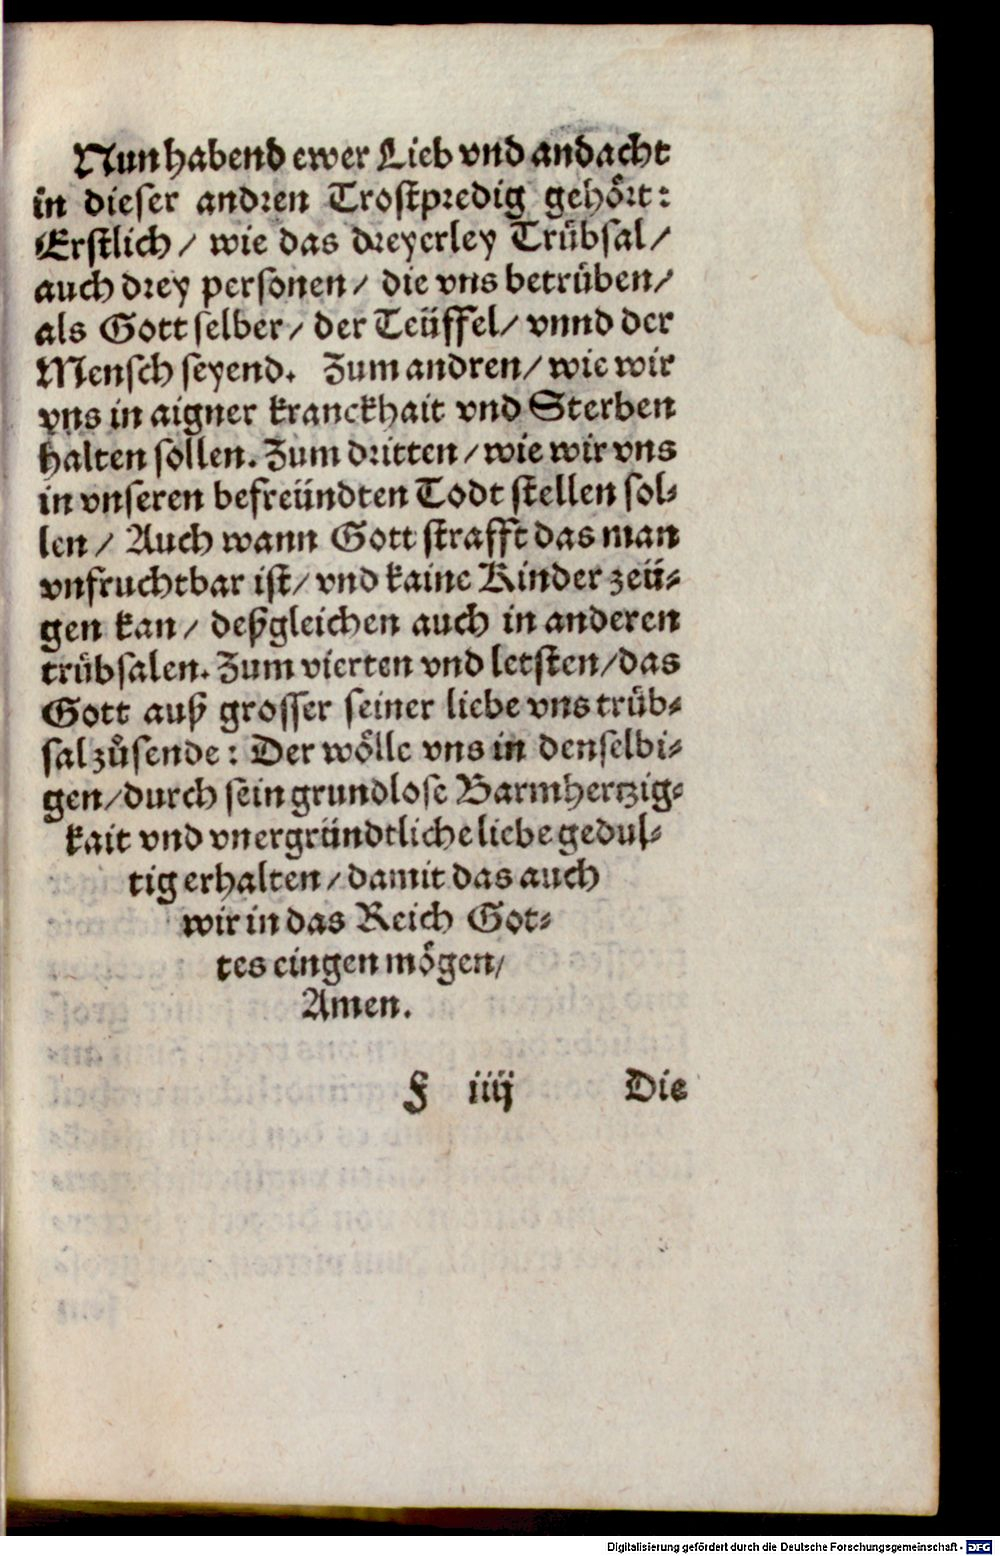 Nun habend ewer Lieb vnd andacht
in dieser andren Trostpredig gehoͤrt:
Erstlich / wie das dreyerley Truͤbsal /
auch drey personen / die vns betruͤben /
als Gott selber / der Teüffel / vnnd der
Mensch seyend. Zum andren / wie wir
vns in aigner kranckhait vnd Sterben
halten sollen. Zum dritten / wie wir vns
in vnseren befreündten Todt stellen sol⸗
len / Auch wann Gott strafft das man
vnfruchtbar ist / vnd kaine Kinder zeü⸗
gen kan / deßgleichen auch in anderen
truͤbsalen. Zum vierten vnd letsten / das
Gott auß grosser seiner liebe vns truͤb⸗
sal zuͦsende: Der woͤlle vns in denselbi⸗
gen / durch sein grundlose Barmhertzig⸗
kait vnd vnergründtliche liebe gedul⸗
tig erhalten / damit das auch
wir in das Reich Got⸗
tes eingen moͤgen /
Amen.
F iiij Die
Digitalisierung gefördert durch die Deutsche Forschungsgemeinschaft - DFG